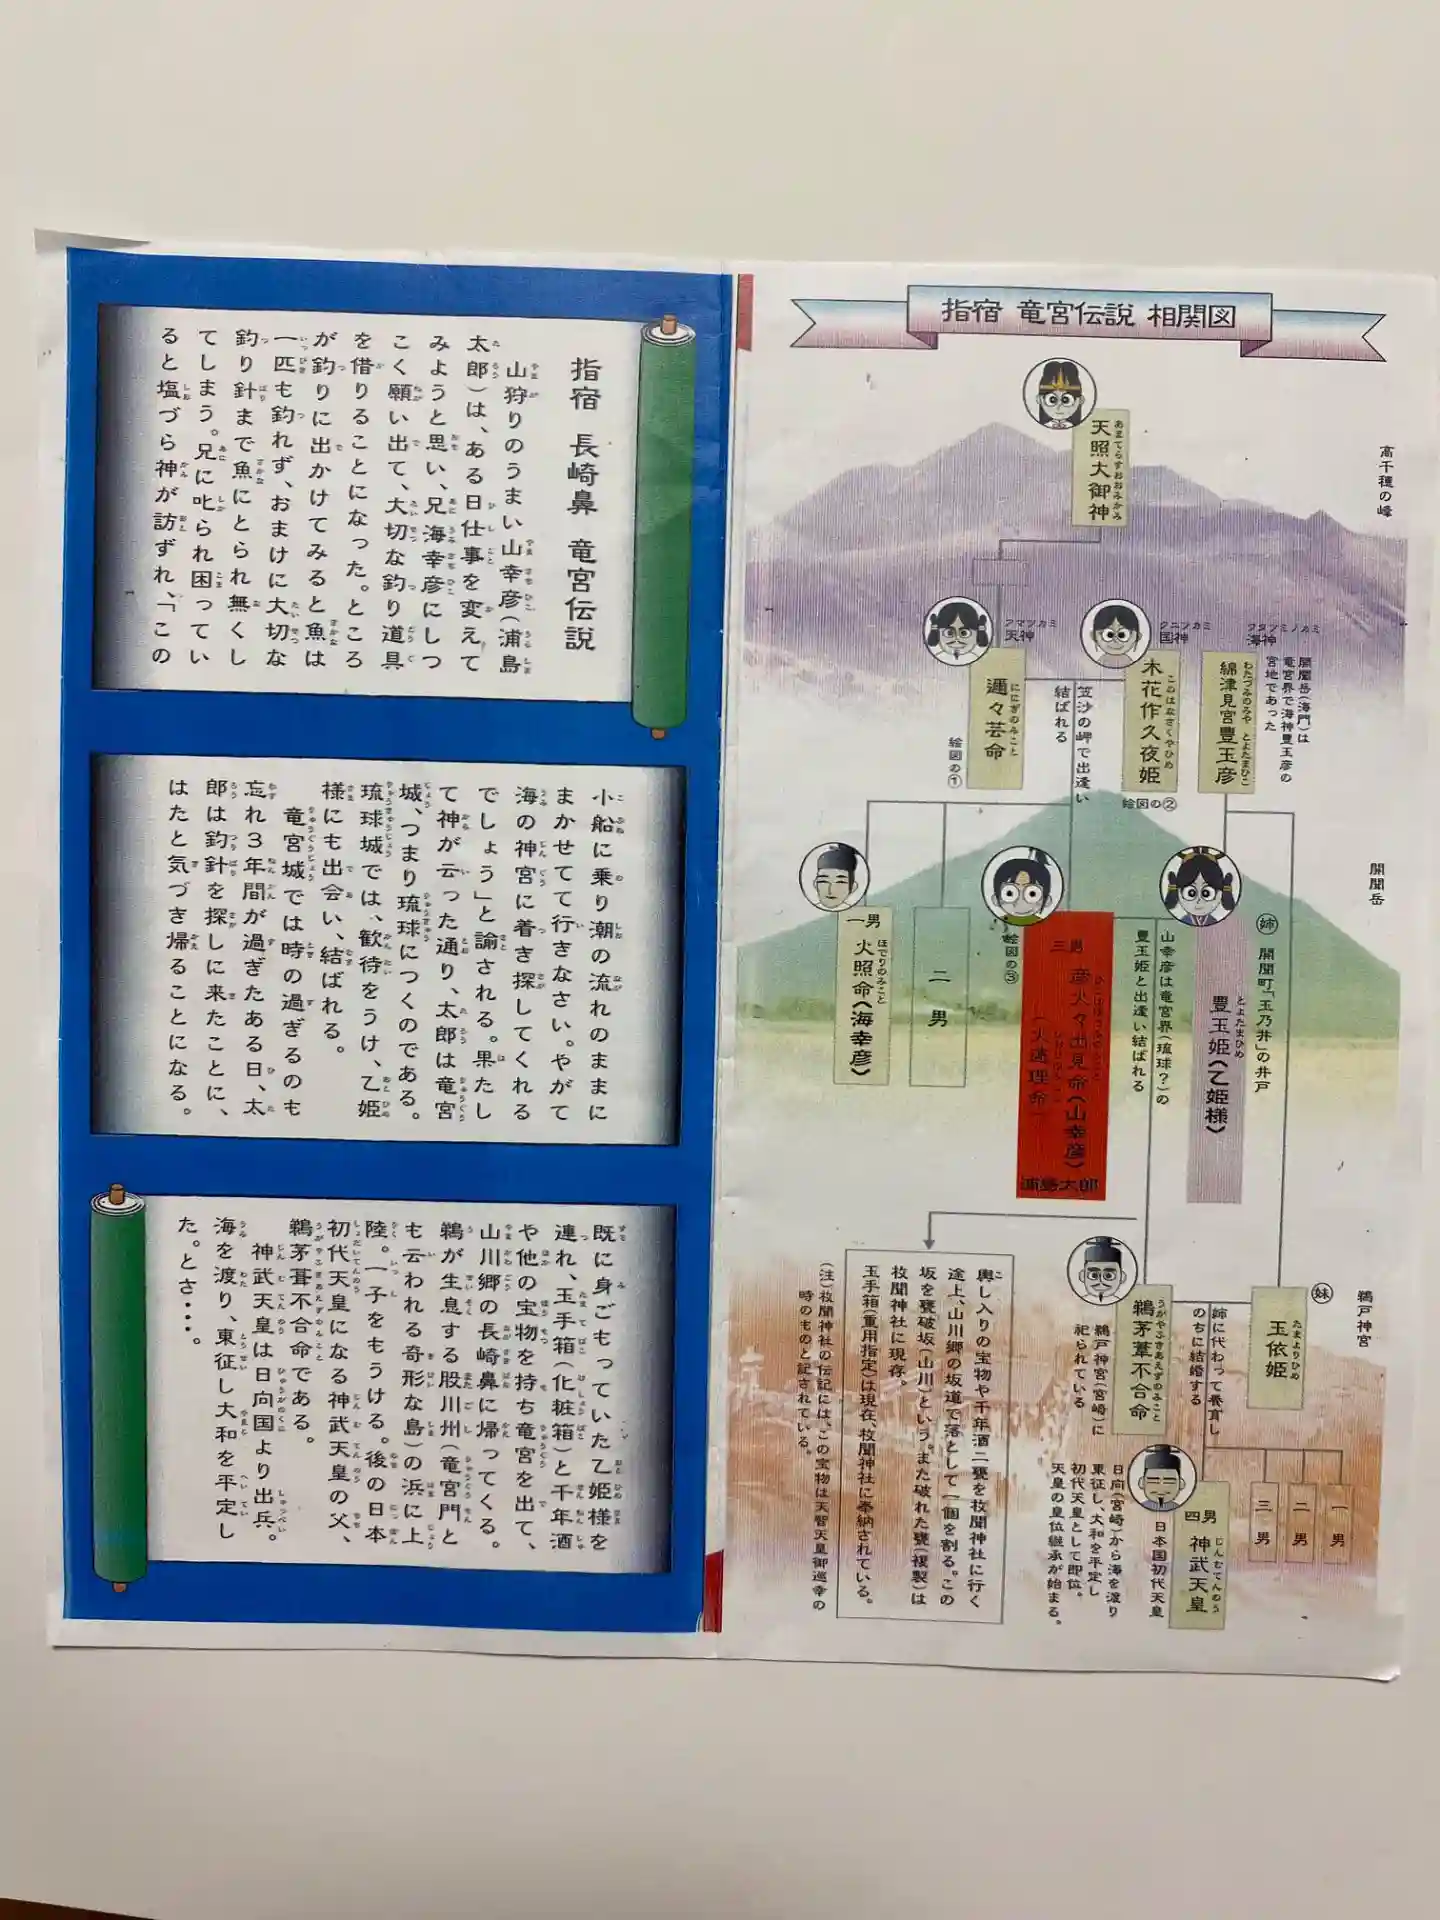 指宿 竜宮伝説 相関図
高千穂の峰
天照大御神
あまてらすおおみかみ
ワタツミノカミ
海神
クニツカミ
国神
アマツカミ
天神
開聞岳(海門)は
竜宮界で海神豊玉彦の
宮地であった
綿津見宮豊玉彦
わたづみのみや とよたまひこ
木花作久夜姫
このはなさくやひめ
絵図の②
笠沙の岬で出逢い
結ばれる
邇々芸命
ににぎのみこと
絵図の①
開聞岳
姉
開聞町「玉乃井」の井戸
豊玉姫(乙姫様)
とよたまひめ
山幸彦は竜宮界(琉球?)の
豊玉姫と出逢い結ばれる
三男
彦火々出見命(山幸彦)
(火遠理命)
浦島太郎
絵図の③
二男
一男
火照命(海幸彦)
ほでりのみこと
鵜戸神宮
妹
玉依姫
たまよりひめ
姉に代わって養育し
のちに結婚する
鵜茅葺不合命
うがやふきあえずのみこと
鵜戸神宮(宮崎)に
祀られている
一男
二男
三男
四男
神武天皇
じんむてんのう
日本国初代天皇
日向(宮崎)から海を渡り
東征し、大和を平定し
初代天皇として即位。
天皇の皇位継承が始まる。
輿し入りの宝物や千年酒二甕を枚聞神社に行く
途上、山川郷の坂道で落として一個を割る。この
坂を甕破坂(山川)という。また破れた甕(複製)は
枚聞神社に現存。
玉手箱(重用指定)は現在、枚聞神社に奉納されている。
(注)枚聞神社の伝記には、この宝物は天智天皇御巡幸の
時のものと記されている。
指宿 長崎鼻 竜宮伝説
山狩りのうまい山幸彦(浦島
太郎)は、ある日仕事を変えて
みようと思い、兄海幸彦にしつ
こく願い出て、大切な釣り道具
を借りることになった。ところ
が釣りに出かけてみると魚は
一匹も釣れず、おまけに大切な
釣り針まで魚にとられ無くし
てしまう。兄に叱られ困ってい
ると塩づら神が訪ずれ、「この
小船に乗り潮の流れのままに
まかせてて行きなさい。やがて
海の神宮に着き探してくれる
でしょう」と諭される。果たし
て神が云った通り、太郎は竜宮
城、つまり琉球につくのである。
琉球城では、歓待をうけ、乙姫
様にも出会い、結ばれる。
竜宮城では時の過ぎるのも
忘れ3年間が過ぎたある日、太
郎は釣針を探しに来たことに、
はたと気づき帰ることになる。
既に身ごもっていた乙姫様を
連れ、玉手箱(化粧箱)と千年酒
や他の宝物を持ち竜宮を出て、
山川郷の長崎鼻に帰ってくる。
鵜が生息する股川州(竜宮門と
も云われる奇形な島)の浜に上
陸。一子をもうける。後の日本
初代天皇になる神武天皇の父、
鵜茅葺不合命である。
神武天皇は日向国より出兵。
海を渡り、東征し大和を平定し
た。とさ・・・。